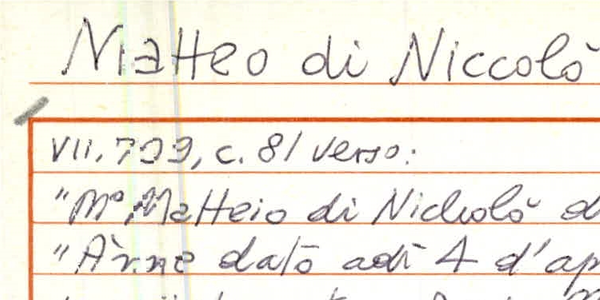 Matteo di Niccolò
VII. 709, c. 81 verso:
"Mº Matteio di Nicholò d
"Ànne dato adì 4 d'ap